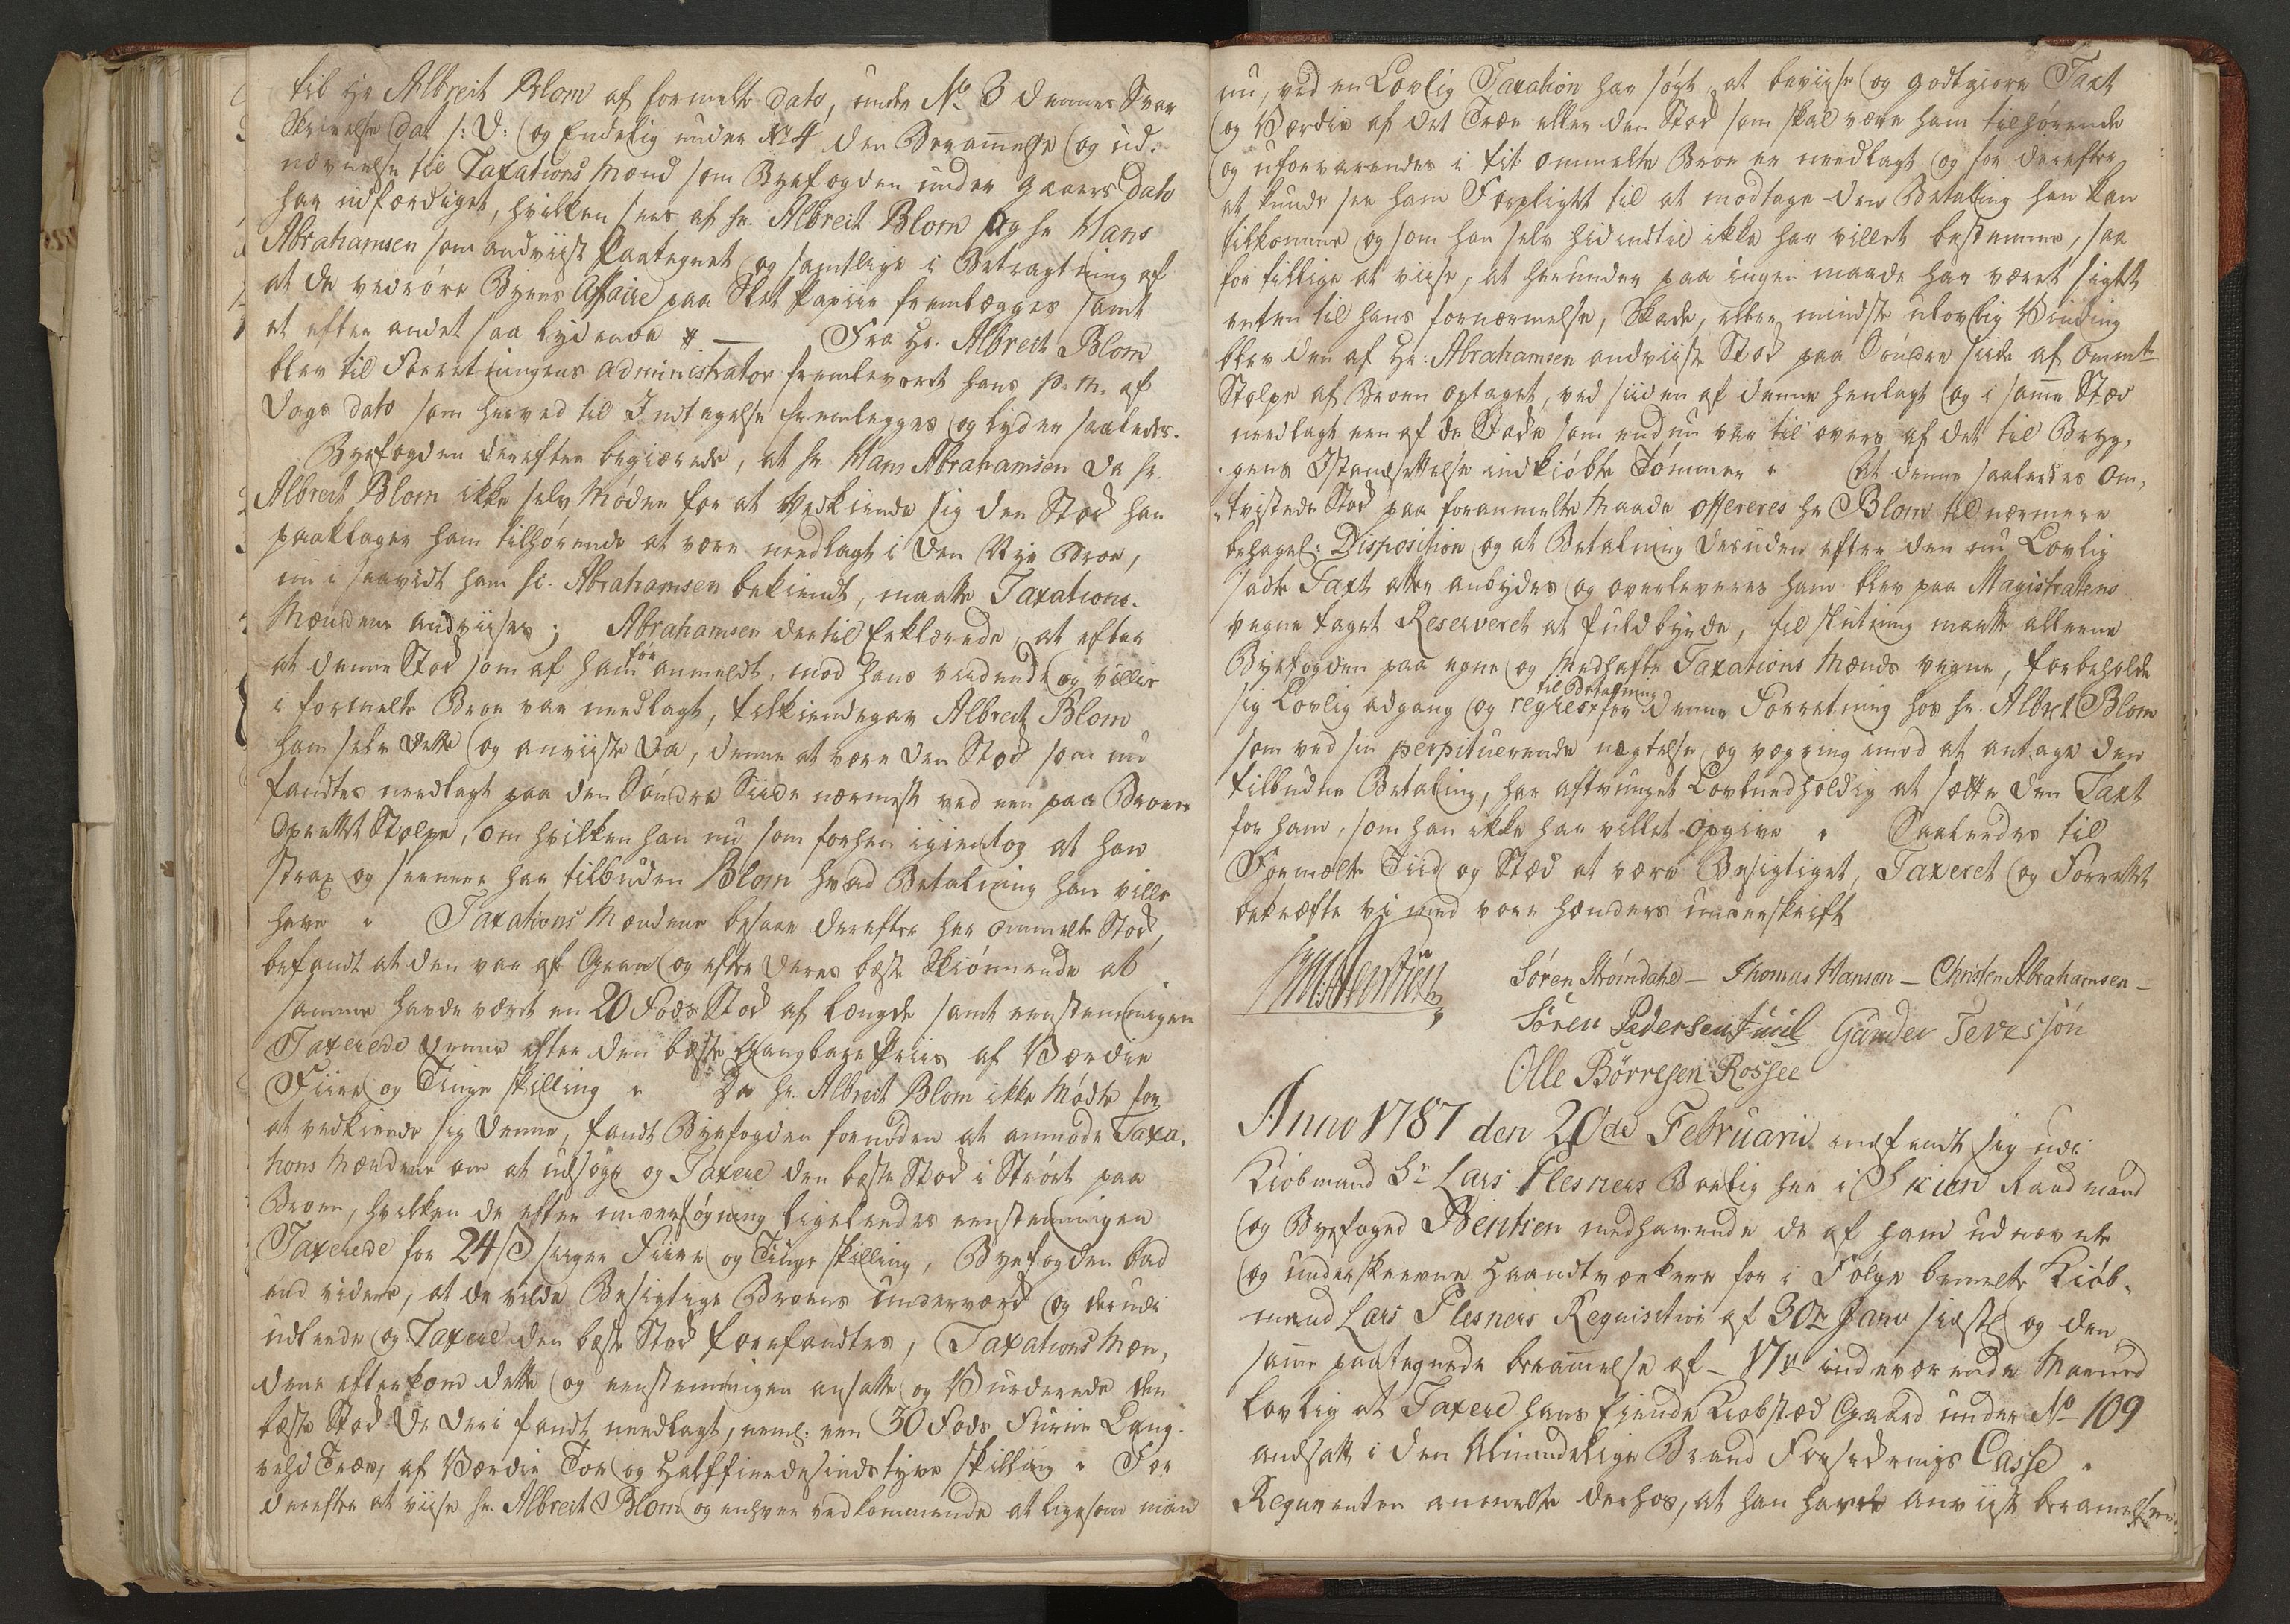 til Hr Albreit Blom af formelte dato, under No 3 dennes Svar
Skrivelse dat s: D: og Endelig under No 4 den Berammelse og ud-
nævnelse til Taxations Mænd som Byefogden under Gaars Dato
har udfærdiget, hvilken sees at hr. Albreit Blom og hr Hans
Abrahamsen som andviist Paategnet og samtlige i Betragtning af
at de vedrøre Byens Affaire paa Slet Papiir fremlægges samt
et efter andet saa lydende # — Fra Hr. Albreit Blom
blev til Forretningens administrator fremleveret hans p. m. af
Dags dato som herved til Indtagelse fremlegges og lyder saaledes.
Byefogden derefter begierede, at hr. Hans Abrahamsen da hr.
Albreit Blom ikke selv Møder for at vedkiende sig den Stok han
paaklager ham tilhørende at være nedlagt i den Nye Broe,
nu i saavidt ham hr. Abrahamsen bekiendt, maatte Taxations-
Mændene andviises; Abrahamsen dertil Erklærede at efter
at denne Stok som af ham før anmeldt, mod hans vidende og villie
i formelte Broe var nedlagt, tilkiendegav Albreit Blom
ham selv dette og anviiste da, denne at være den Stok som nu
fandtes nedlagt paa den Søndre Siide nærmest ved een paa Broen
Oprettet Stolpe, om hvilken han nu som forhen igientog at han
strax og senere har tilbuden Blom hvad Betaling han ville
have " Taxations Mændene besaae derefter her ommelte Stok,
befandt at den var af Gran og efter deres beste Skiønnende at
samme havde vært en 20 Fods Stok af Længde samt eenstemmigen
Taxerede denne efter den beste Gangbare Priis af Værdie
Fiire og Tiuge skilling " Da hr. Albreit Blom ikke Mødte for
at vedkiende sig denne, fandt Byefogden fornøden at anmode Taxa-
tions Mændene om at udsøge og Taxere den beste Stok i Strøet paa
Broen, hvilken de efter undersøgning ligeledes eenstemmigen
Taxerede for 24 s siiger Fiire og Tiuge skilling, Byefogden bad
end videre, at de vilde Besigtige Broens Underværk og derudi
udlede og Taxere den beste Stok forefandtes, Taxations Mæn-
dene efterkom dette og eenstemmigen ansatte og Vurderede den
beste Stok de deri fandt nedlagt, neml: een 30 Fods Furue Lang-
veld Træe, af Værdie Toe og Halffierdesindstyve skilling " For
derefter at viise hr. Albreit Blom og enhver vedkommende at ligesom man
nu, ved en Lovlig Taxation har søgt at beviise og godtgiøre Taxt
og Værdie af det Træe eller den Stok som skal være ham tilhørende
og uforvarendes i tit ommelte Broe er nedlagt og for derefter
at kunde see ham Forpligtet til at modtage den Betaling han kan
tilkomme og som han selv hidindtil ikke har villet bestemme, saa
for tillige at viise, at herunder paa ingen maade har været sigtet
enten til hans fornærmelse, Skade, eller mindste ulovlig Vinding
blev den af Hr: Abrahamsen andviiste Stok paa Søndre side af ommte
Stolpe af Broen optaget, ved siiden af denne henlagt og i samme Sted
nedlagt een af de Stoke som endnu var til overs af det til Bryg-
gens Istandsettelse indkiøbte Tømmer " At denne saaledes om-
tvistede Stok paa foranmelte Maade offereres hr Blom til nærmere
behagel: Disposition og at Betaling desuden efter den nu Lovlig
satte Taxt atter anbydes og overleveres ham blev paa Magistratens
vegne taget Reserveret at fuldbyrde, til slutning maatte alleene
Byefogden paa egne og Medhafte Taxations Mænds vegne, forbeholde
sig Lovlig adgang og regress til Betaling for denne Forretning hos hr. Albret Blom
som ved sin perpetuerende nægtelse og vægring imod at antage den
tilbudne Betaling, har aftvunget Lovbestholdig at sætte den Taxt
for ham, som han ikke har villet opgive " Saaledes til
Formelte Tiid og Sted at være Besigtiget, Taxeret og Forrettet
bekræfte vi med vore Hænders underskrift
Bentzen
Søren Strømdahl — Thomas Hansen — Christen Abrahamsen —
Sören Pedersen Juul Gunder Tevessön
Olle Börresen Rossee
Anno 1787 den 20de Februarii indfandt sig udi
Kiøbmand Sr Lars Plesners Boelig her i Skien Raadmand
og Byefoged Bentsen medhavende de af ham udnævnte
og underskrevne Haandtværkere for i Følge bemelte Kiøb-
mand Lars Plesners Requisition af 30te Janv sidstl og den
samme paategnede berammelse af 17de indeværende Maaned
lovlig at Taxere hans Eiende Kiøbsted Gaard under No 109
andsatt i den Almindelige Brand Forsikrings Casse "
Requirenten anmelte derhos, at han havde anviist berammelsen